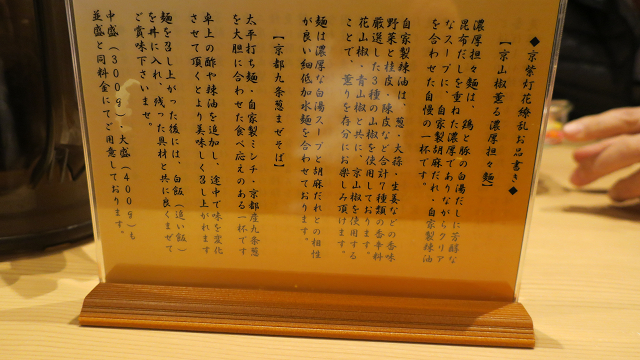 ◆京紫灯花繚乱お品書き◆
【京山椒薫る濃厚担々麺】
濃厚担々麺は、鶏と豚の白湯だしに芳醇な
昆布だしを重ねた濃厚でありながらクリア
なスープに、自家製胡麻だれ・自家製辣油
を合わせた自慢の一杯です。
自家製辣油は、葱・大蒜・生姜などの香味
野菜と桂皮・陳皮など合計7種類の香辛料
厳選した3種の山椒を使用しております。
花山椒、青山椒と共に、京山椒を使用する
ことで、薫りを存分にお楽しみ頂けます。
麺は濃厚な白湯スープと胡麻だれとの相性
が良い細低加水麺を合わせております。
【京都九条葱まぜそば】
太平打ち麺・自家製ミンチ・京都産九条葱
を大胆に合わせた食べ応えのある一杯です
卓上の酢や辣油を追加し、途中で味を変化
させて頂くとより美味しく召し上がれます
麺を召し上がった後には、白飯(追い飯)
を丼に入れ、残った具材と共に良くまぜて
ご賞味下さいませ。
中盛(300g)・大盛(400g)も
並盛と同料金にてご用意しております。